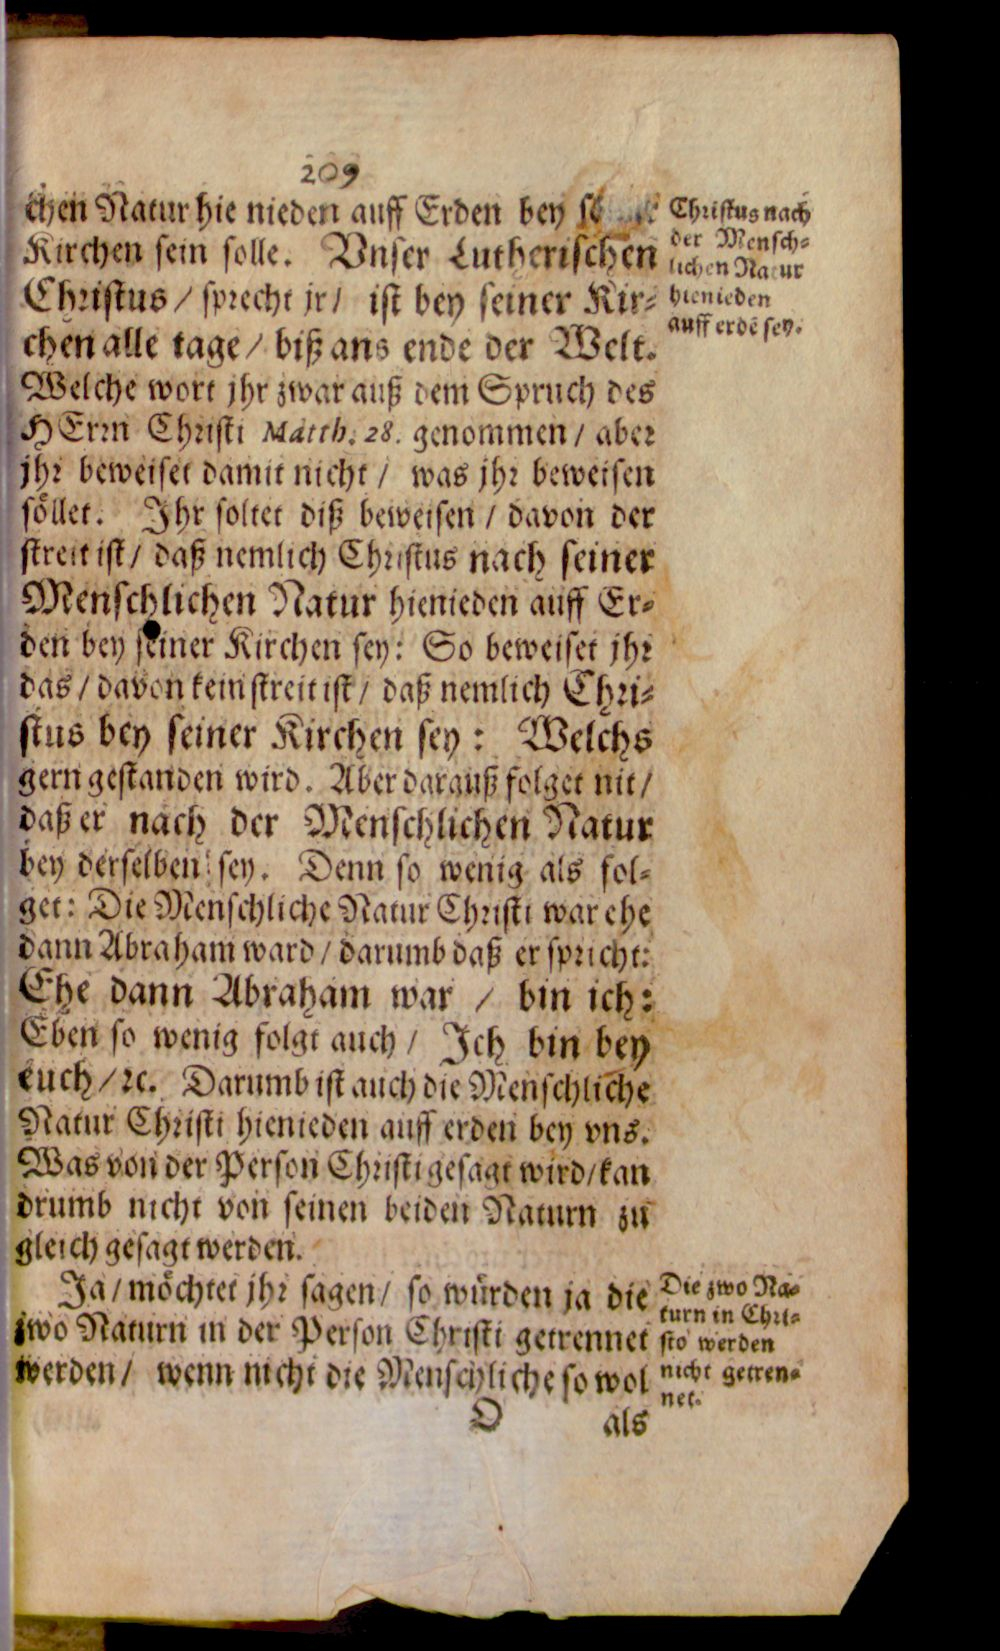 209
chen Natur hie nieden auff Erden bey
Kirchen sein solle. Vnser Lutherischen
Christus / sprecht jr / ist bey seiner Kir⸗
chen alle tage / biß ans ende der Welt.
Welche wort jhr zwar auß dem Spruch des
HErrn Christi Matth. 28. genommen / aber
jhr beweiset damit nicht / was jhr beweisen
söllet. Ihr soltet diß beweisen / davon der
streit ist / daß nemlich Christus nach seiner
Menschlichen Natur hienieden auff Er⸗
den bey seiner Kirchen sey: So beweiset jhr
das / davon kein streit ist / daß nemlich Chri⸗
stus bey seiner Kirchen sey: Welchs
gern gestanden wird. Aber darauß folget nit /
daß er nach der Menschlichen Natur
bey derselben sey. Denn so wenig als fol⸗
get: Die Menschliche Natur Christi war ehe
dann Abraham ward / darumb daß er spricht:
Ehe dann Abraham war / bin ich:
Eben so wenig folgt auch / Ich bin bey
euch / ꝛc. Darumb ist auch die Menschliche
Natur Christi hienieden auff erden bey vns.
Was von der Person Christi gesagt wird / kan
drumb nicht von seinen beiden Naturn zu
gleich gesagt werden.
Ja / möchtet jhr sagen / so würden ja die
zwo Naturn in der Person Christi getrennet
werden / wenn nicht die Menschliche so wol
O als
Christus nach
der Mensch⸗
lichen Natur
hienieden
auff erdē sey.
Die zwo Na⸗
turn in Chri⸗
sto werden
nicht getren⸗
net.